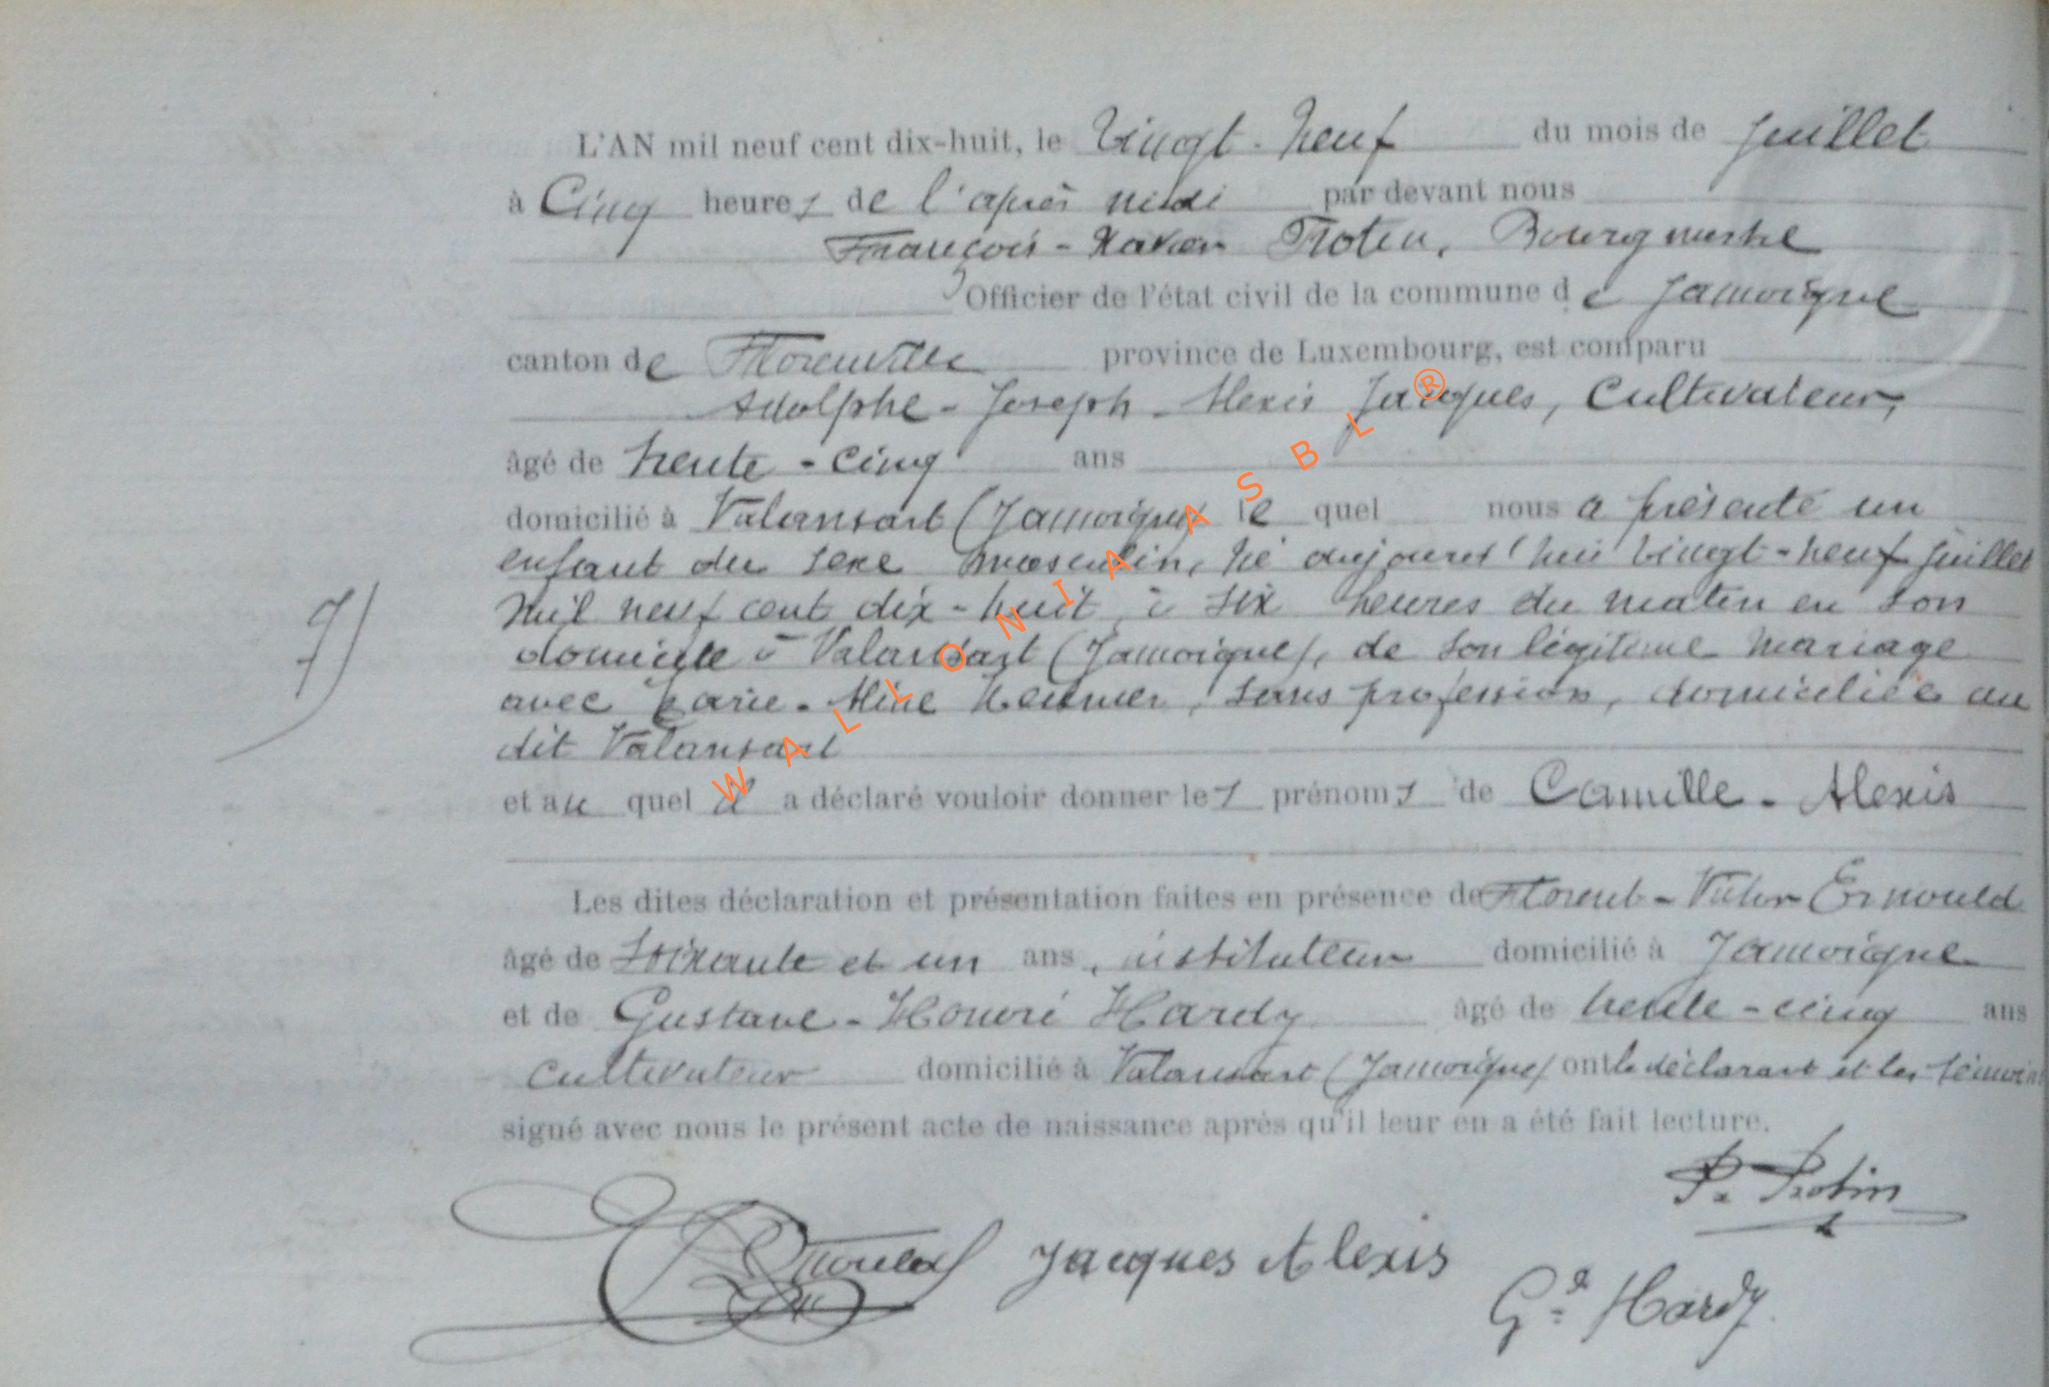 L'AN mil neuf cent dix-huit, le Vingt-neuf du mois de juillet
à Cinq heures de l'après midi par devant nous
François-Xavier Protin, Bourgmestre
Officier de l'état civil de la commune de Jamoigne
canton de Florenville province de Luxembourg, est comparu
Adolphe-Joseph-Alexis Jacques, cultivateur,
âgé de trente-cinq ans
domicilié à Valansart (Jamoigne) le quel nous a présenté un
enfant du sexe masculin, né aujourd'hui vingt-neuf juillet
mil neuf cent dix-huit à six heures du matin en son
domicile à Valansart (Jamoigne), de son légitime mariage
avec Marie-Aline, sans profession, domiciliée au
dit Valansart
et au quel il a déclaré vouloir donner les prénoms de Camille-Alexis
7)
Les dites déclaration et présentation faites en présence de Florent-Victor Ernould
âgé de soixante et un ans, instituteur domicilié à Jamoigne
et de Gustave-Honoré Hardy âgé de trente-cinq ans
cultivateur domicilié à Valansart (Jamoigne) ont le déclarant et les témoins
signé avec nous le présent acte de naissance après qu'il leur en a été fait lecture.
Protin
Ernould Jacques Alexis
Gve Hardy
WALLONIA ASBL®